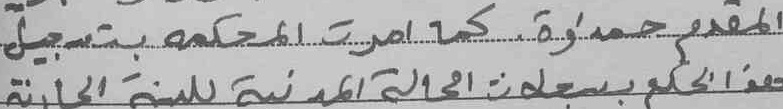 المقدم حمداوة. كما امرت المحكمه بتسجيل
هذا الحكم بسجلات الحالة المدنية للسنة الجارية